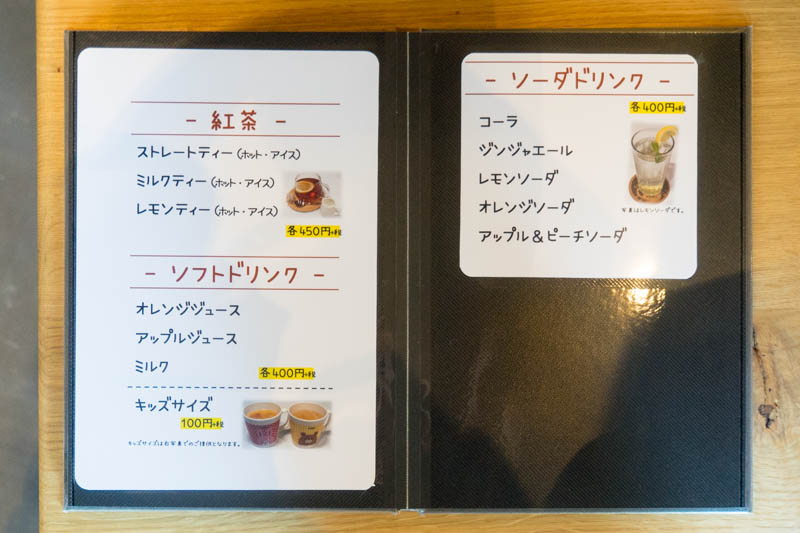 - 紅茶 -
ストレートティー（ホット・アイス）
ミルクティー（ホット・アイス）
レモンティー（ホット・アイス）
各450円+税
- ソフトドリンク -
オレンジジュース
アップルジュース
ミルク
各400円+税
キッズサイズ
100円+税
キッズサイズはお写真でのご提供となります。
- ソーダドリンク -
各400円+税
コーラ
ジンジャエール
レモンソーダ
オレンジソーダ
アップル＆ピーチソーダ
写真はレモンソーダです。